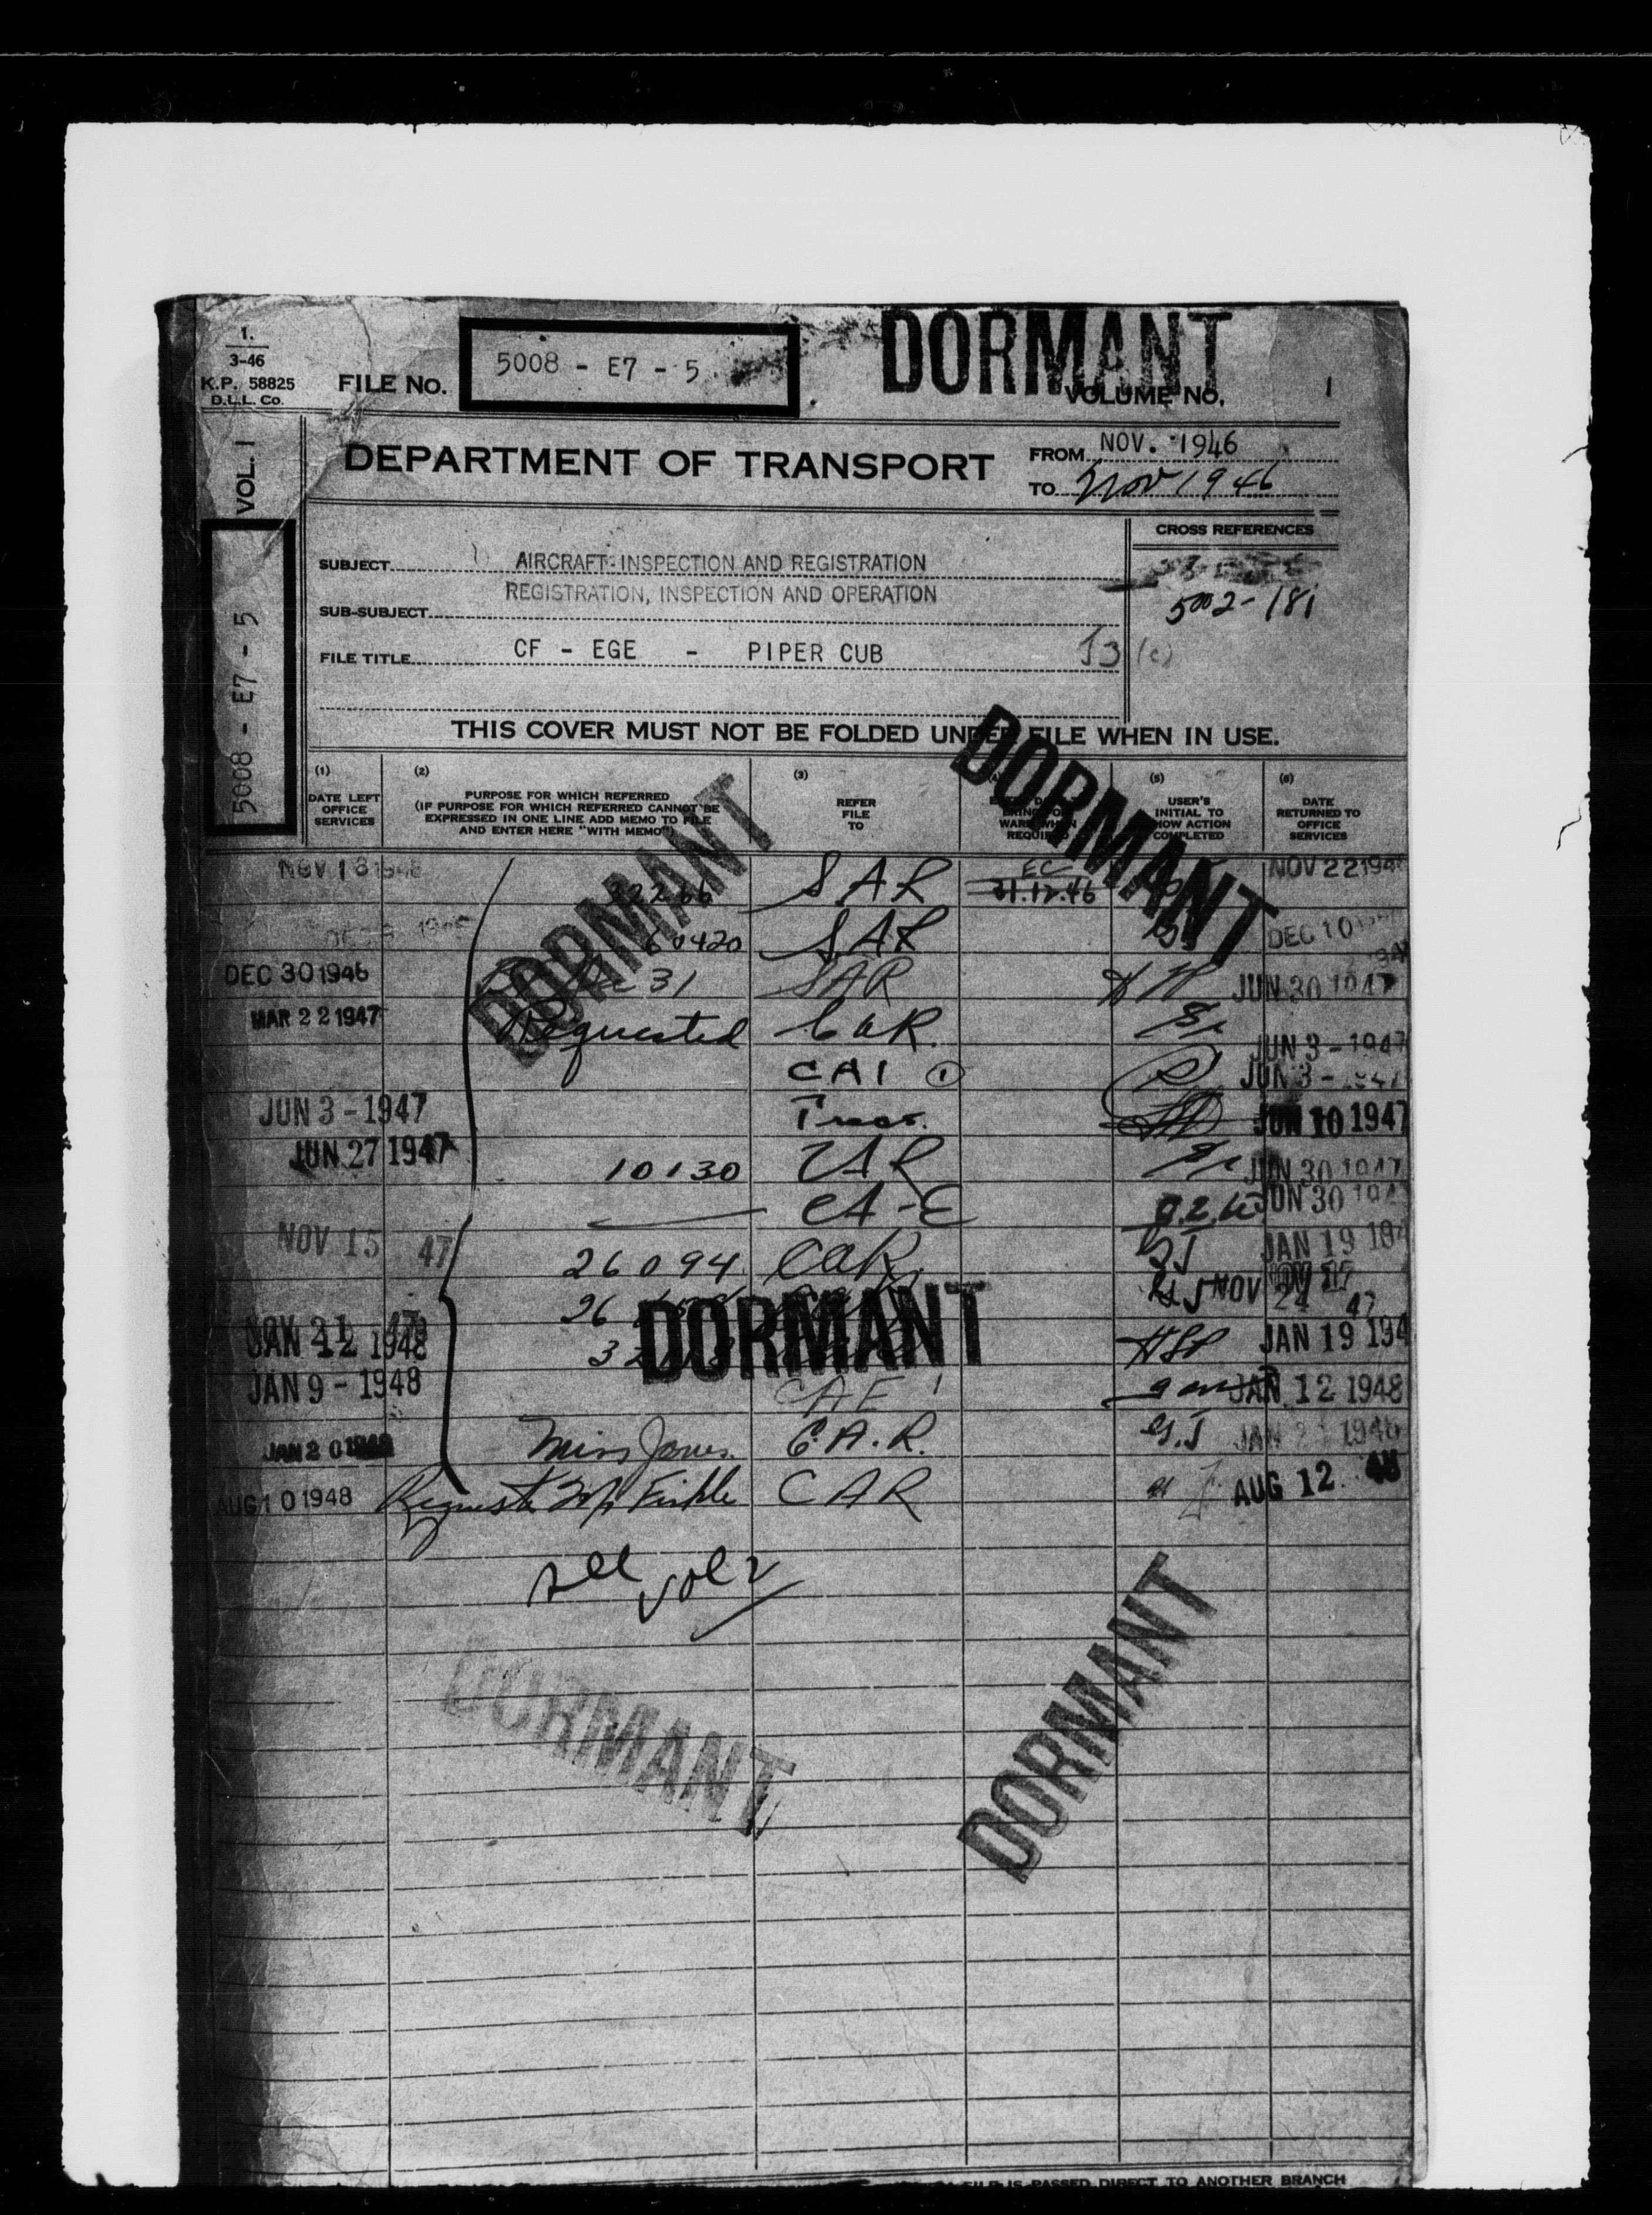 1.
3-46
K.P. 58825
D.L.L. Co.
FILE NO. 5008 - E7 - 5
DORMANT
VOLUME NO. 1
VOL. 1
DEPARTMENT OF TRANSPORT
FROM NOV. 1946
TO Nov 1946
CROSS REFERENCES
502-181
SUBJECT AIRCRAFT-INSPECTION AND REGISTRATION
REGISTRATION, INSPECTION AND OPERATION
SUB-SUBJECT
FILE TITLE CF - EGE - PIPER CUB
5008 - E7 - 5
THIS COVER MUST NOT BE FOLDED UNDER FILE WHEN IN USE.
DORMANT
DORMANT
(1) DATE LEFT OFFICE SERVICES
(2) PURPOSE FOR WHICH REFERRED
(IF PURPOSE FOR WHICH REFERRED CANNOT BE
EXPRESSED IN ONE LINE ADD MEMO TO FILE
AND ENTER HERE "WITH MEMO")
(3) REFER FILE TO
(5) USER'S INITIAL TO SHOW ACTION COMPLETED
(6) DATE RETURNED TO OFFICE SERVICES
SAR EC 31.12.46 NOV 22 194
SAR DEC 10
DEC 30 1946 31 SAR JUN 30 1947
MAR 22 1947 Requested CAR. JUN 3 - 1947
CAI 1 JUN 3 - 1947
JUN 3 - 1947 JUN 10 1947
JUN 27 1947 10130 JUN 30 1947
CA-E JUN 30 194
NOV 15 47 26094 CAR. JAN 19 194
26 NOV 24 47
NOV 21 47
JAN 12 1948 DORMANT JAN 19 194
JAN 9 - 1948 CAE JAN 12 1948
JAN 20 1948 Miss Jones. C.A.R. G.J JAN 2 1948
AUG 10 1948 CAR AUG 12 48
see vol 2
DORMANT
DORMANT
FILE IS PASSED DIRECT TO ANOTHER BRANCH